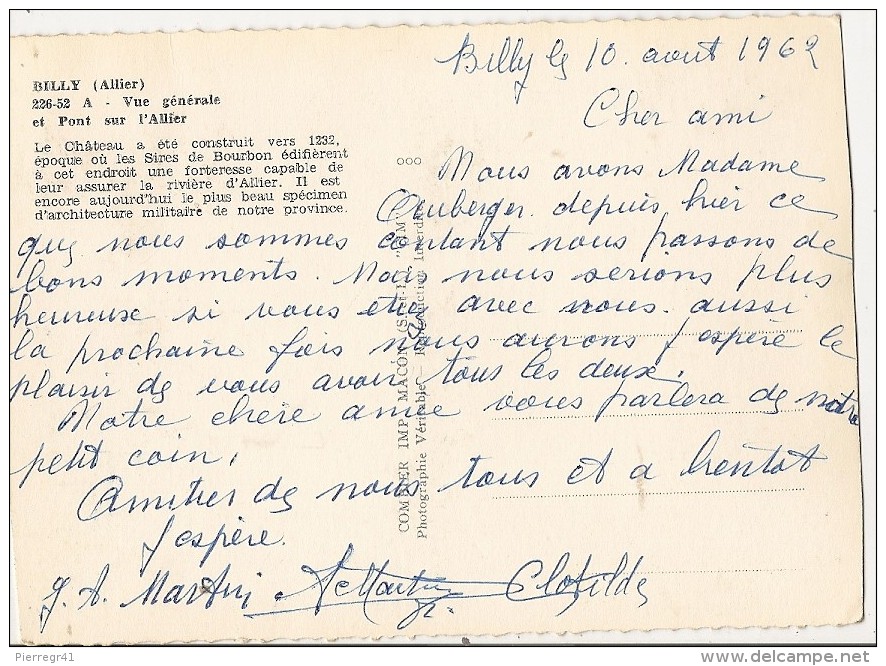 BILLY (Allier)
226-52 A - Vue générale
et Pont sur l'Allier
Le Château a été construit vers 1232,
époque où les Sires de Bourbon édifièrent
à cet endroit une forteresse capable de
leur assurer la rivière d'Allier. Il est
encore aujourd'hui le plus beau spécimen
d'architecture militaire de notre province.
COMBIER IMP. MACON (S.-et-L.) "CIM"
Photographie Véritable - Reproduction Interdite
Billy le 10 aout 1962
Cher ami
Nous avons Madame
Auberger depuis hier ce
que nous sommes contant nous passons de
bons moments. Mais nous serions plus
heureuse si vous etie avec nous aussi
la prochaine fois nous aurons j espère le
plaisir de vous avoir tous les deux.
Notre chère amie vous parlera de notre
petit coin.
Amities de nous tous et a bientot
j espère.
J. A. Martin Clotilde
Pierregr41
delcampe.net